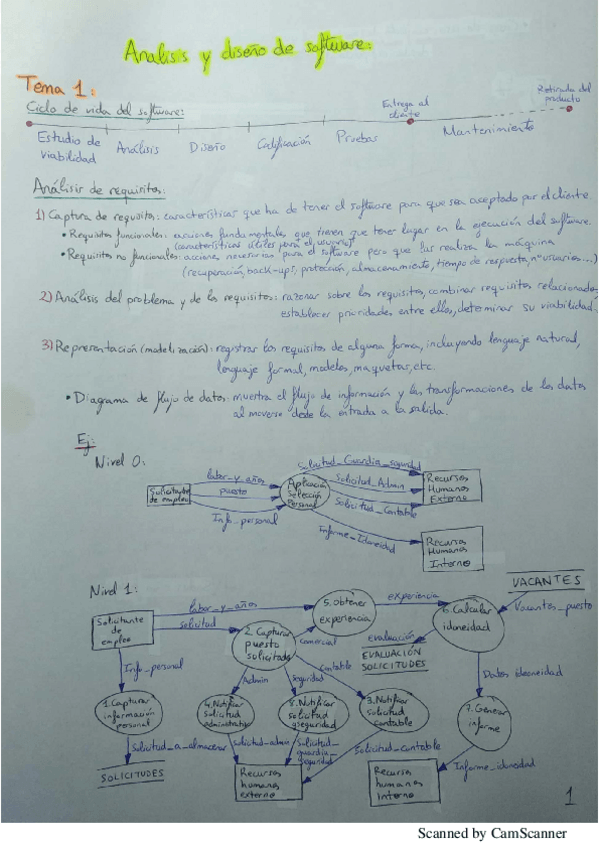 Analisis y diseño de software:
Tema 1:
Ciclo de vida del software:
Entrega al cliente
Retirada del producto
Estudio de viabilidad
Análisis
Diseño
Codificación
Pruebas
Mantenimiento
Análisis de requisitos:
1) Captura de requisitos: características que ha de tener el software para que sea aceptado por el cliente.
• Requisitos funcionales: acciones fundamentales que tienen que tener lugar en la ejecución del software.
(características útiles para el usuario)
• Requisitos no funcionales: acciones necesarias para el software pero que las realiza la máquina
(recuperación, back-ups, protección, almacenamiento, tiempo de respuesta, nº usuarios...)
2) Análisis del problema y de los requisitos: razonar sobre los requisitos, combinar requisitos relacionados,
establecer prioridades entre ellos, determinar su viabilidad.
3) Representación (modelización): registrar los requisitos de alguna forma, incluyendo lenguaje natural,
lenguaje formal, modelos, maquetas, etc.
• Diagrama de flujo de datos: muestra el flujo de información y las transformaciones de los datos
al moverse desde la entrada a la salida.
Ej:
Nivel 0:
Solicitante de empleo
labor_y_años
puesto
Info_personal
Aplicación Selección Personal
Solicitud_Guardia_seguridad
Solicitud_Admin
Solicitud_Contable
Informe_Idoneidad
Recursos Humanos Externo
Recursos Humanos Interno
Nivel 1:
Solicitante de empleo
labor_y_años
solicitud
Info_personal
5. Obtener experiencia
experiencia
6. Calcular idoneidad
VACANTES
Vacantes_puesto
2. Capturar puesto solicitado
comercial
evaluación
EVALUACIÓN SOLICITUDES
Admin
seguridad
Contable
Datos idoneidad
1. Capturar información personal
4. Notificar solicitud administrativo
8. Notificar solicitud gseguridad
3. Notificar solicitud contable
7. Generar informe
solicitud_a_almacenar
solicitud_admin
Solicitud_guardia_seguridad
Solicitud_contable
Informe_idoneidad
SOLICITUDES
Recursos humanos externo
Recursos humanos Interno
1
Scanned by CamScanner